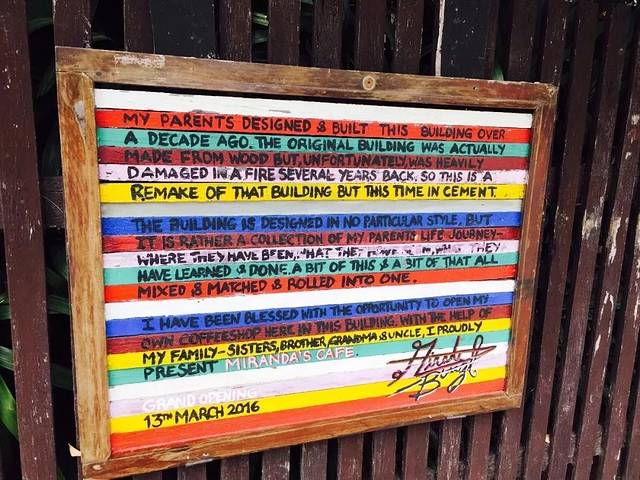 MY PARENTS DESIGNED & BUILT THIS BUILDING OVER
A DECADE AGO. THE ORIGINAL BUILDING WAS ACTUALLY
MADE FROM WOOD BUT, UNFORTUNATELY, WAS HEAVILY
DAMAGED IN A FIRE SEVERAL YEARS BACK. SO THIS IS A
REMAKE OF THAT BUILDING BUT THIS TIME IN CEMENT.
THE BUILDING IS DESIGNED IN NO PARTICULAR STYLE, BUT
IT IS RATHER A COLLECTION OF MY PARENTS LIFE JOURNEY-
WHERE THEY HAVE BEEN, WHAT THEY THEY
HAVE LEARNED & DONE. A BIT OF THIS & A BIT OF THAT ALL
MIXED & MATCHED & ROLLED INTO ONE.
I HAVE BEEN BLESSED WITH THE OPPORTUNITY TO OPEN MY
OWN COFFEESHOP HERE IN THIS BUILDING. WITH THE HELP OF
MY FAMILY- SISTERS, BROTHER, GRANDMA & UNCLE, I PROUDLY
PRESENT MIRANDA'S CAFE.
GRAND OPENING
13TH MARCH 2016